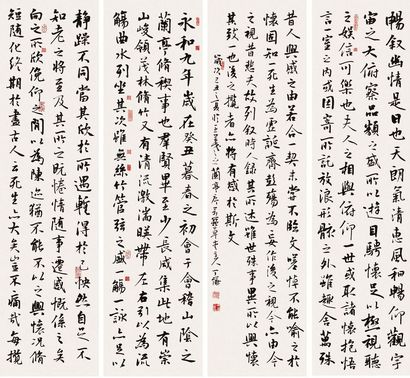 暢叙幽情是日也天朗氣清惠風和暢仰觀宇
宙之大俯察品類之盛所以遊目騁懷足以極視聽
之娛信可樂也夫人之相與俯仰一世或取諸懷抱悟
言一室之內或因寄所託放浪形骸之外雖趣舍萬殊
昔人興感之由若合一契未嘗不臨文嗟悼不能喻之於
懷固知一死生為虛誕齊彭殤為妄作後之視今亦由今
之視昔悲夫故列叙時人錄其所述雖世殊事異所以興懷
其致一也後之攬者亦將有感於斯文
永和九年歲在癸丑暮春之初會于會稽山陰之
蘭亭脩稧事也群賢畢至少長咸集此地有崇
山峻領茂林脩竹又有清流激湍暎帶左右引以為流
觴曲水列坐其次雖無絲竹管弦之盛一觴一詠亦足以
靜躁不同當其欣於所遇暫得於己快然自足不
知老之將至及其所之既惓情隨事遷感慨係之矣
向之所欣俛仰之閒以為陳迹猶不能不以之興懷況脩
短隨化終期於盡古人云死生亦大矣豈不痛哉每攬